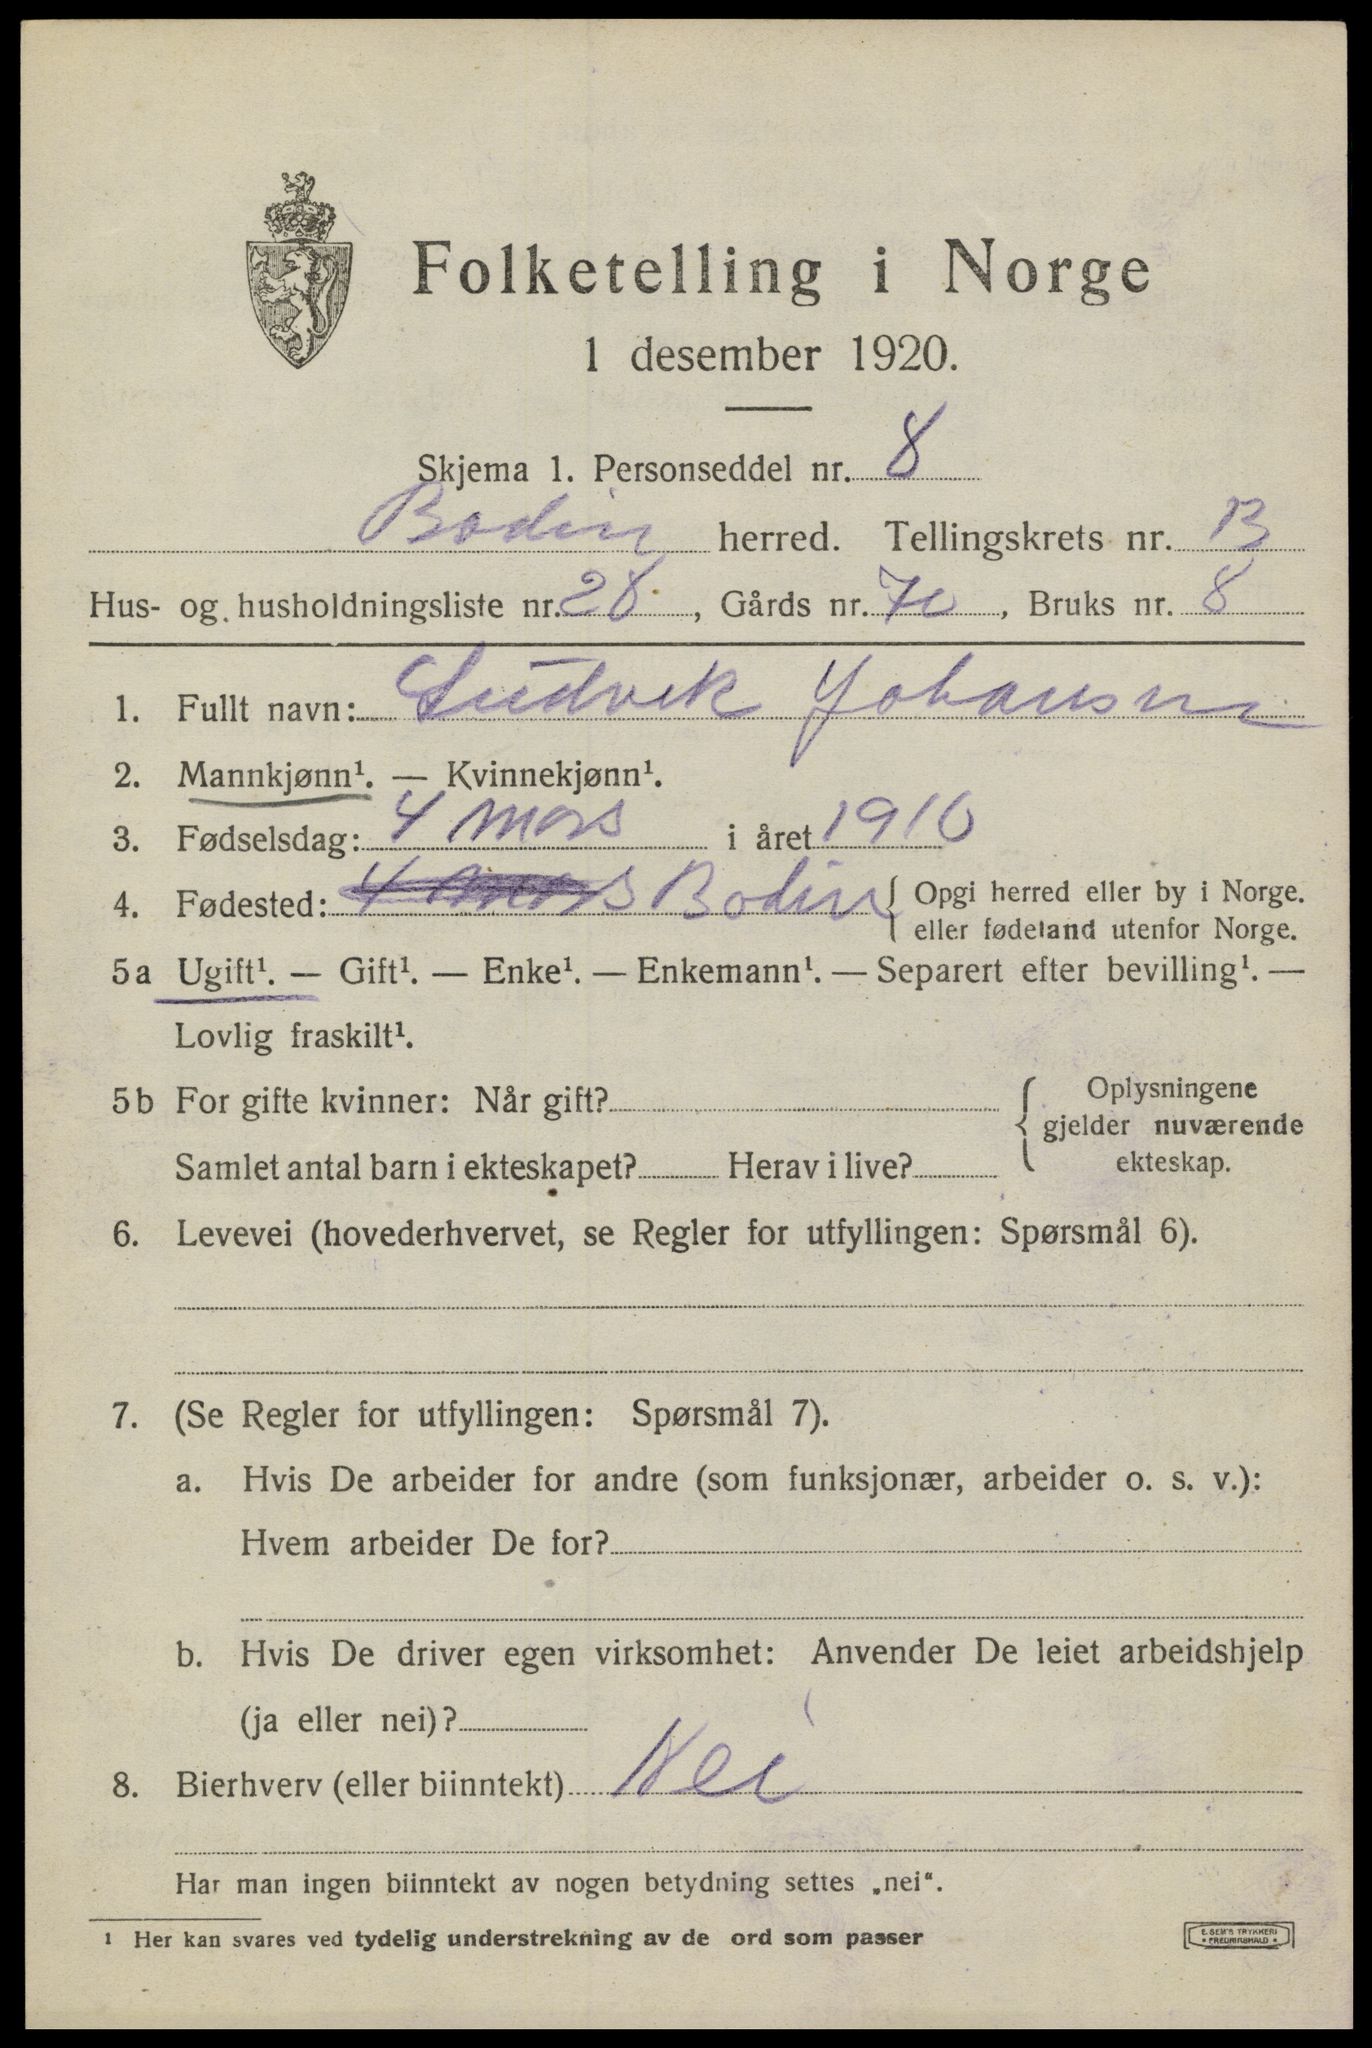 Folketelling i Norge
1 desember 1920.
Skjema 1. Personseddel nr. 8
Bodin herred. Tellingskrets nr. 13
Hus- og husholdningsliste nr. 28, Gårds nr. 70, Bruks nr. 8
1. Fullt navn: Ludvik Johansen
2. Mannkjønn¹. — Kvinnekjønn¹.
3. Fødselsdag: 4 Mars i året 1910
4. Fødested: 4 Mars Bodin { Opgi herred eller by i Norge.
eller fødeland utenfor Norge.
5a Ugift¹. — Gift¹. — Enke¹. — Enkemann¹. — Separert efter bevilling¹. —
Lovlig fraskilt¹.
5b For gifte kvinner: Når gift? { Oplysningene
gjelder nuværende
ekteskap.
Samlet antal barn i ekteskapet? Herav i live?
6. Levevei (hovederhvervet, se Regler for utfyllingen: Spørsmål 6).
7. (Se Regler for utfyllingen: Spørsmål 7).
a. Hvis De arbeider for andre (som funksjonær, arbeider o. s. v.):
Hvem arbeider De for?
b. Hvis De driver egen virksomhet: Anvender De leiet arbeidshjelp
(ja eller nei)?
8. Bierhverv (eller biinntekt) Nei
Har man ingen biinntekt av nogen betydning settes „nei“.
1 Her kan svares ved tydelig understrekning av de ord som passer
E. SEM'S TRYKKERI
* FREDRIKSHALD *